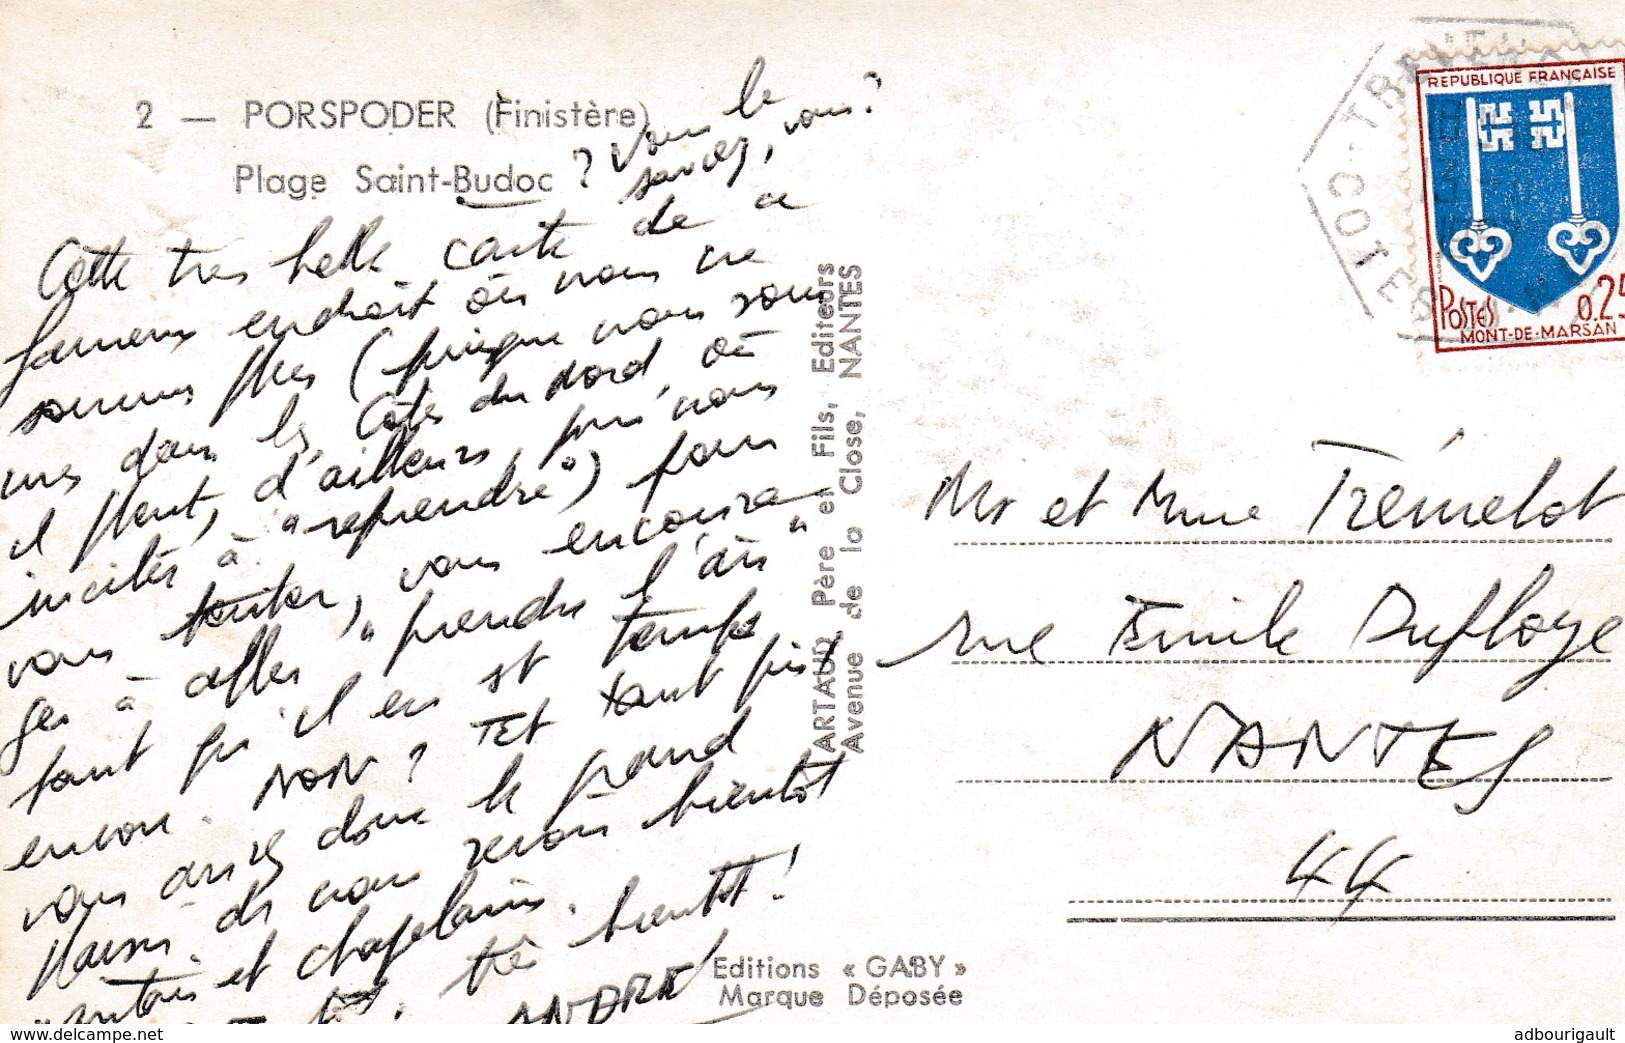 2 — PORSPODER (Finistère)
Plage Saint-Budoc ? Vous le
saviez, vous ?
Cette très belle carte de ce
fameux endroit où nous ne
sommes plus (puisque nous som
mes dans les Côtes du Nord, où
il pleut, d'ailleurs, puis nous
incités à "reprendre") pour
vous tenter, vous encoura
ger à aller "prendre l'air"
tant qu'il en est temps
encore. NON ? ET tant pis
vous aurez donc le grand
plaisir de nous revoir bientôt
et chapelains.
très bientôt !
ANDRÉ
ARTAUD Père et Fils, Editeurs
Avenue de la Close, NANTES
Editions « GABY »
Marque Déposée
REPUBLIQUE FRANÇAISE
POSTES 0.25
MONT-DE-MARSAN
COTES
Mr et Mme Trémelot
rue Emile Duployé
NANTES
44
www.delcampe.net
adbourigault